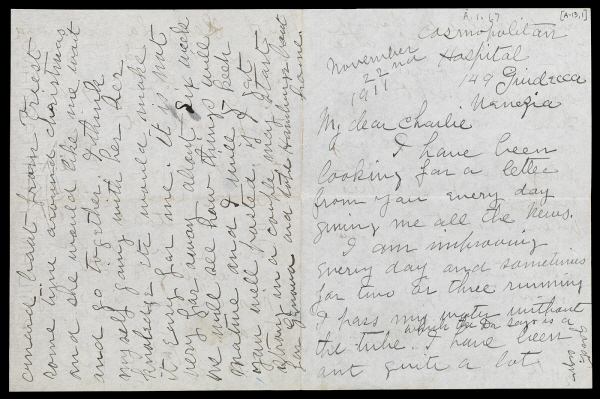 A.1.67
[A-13,1]
Cosmopolitan
Hospital
149 Guidecca
Venezia
November
22nd
1911
My dear Charlie
I have been
looking for a letter
from you every day
giving me all the news.
I am improving
every day and sometimes
for two or three running
I pass my water without
the tube. which the Dr says is a good sign
I have been
out quite a lot
cunard boat from Triest
some time around christmas
and she would like me wait
and go together. I think
myself going with her - her
kindness etc would make
it easy for me. It is not
very far away about six week
we will see how things will
mature and I will keep
you well posted if I get
strong in a couple mos. I start
for Genova and take Hamburg boat
home.